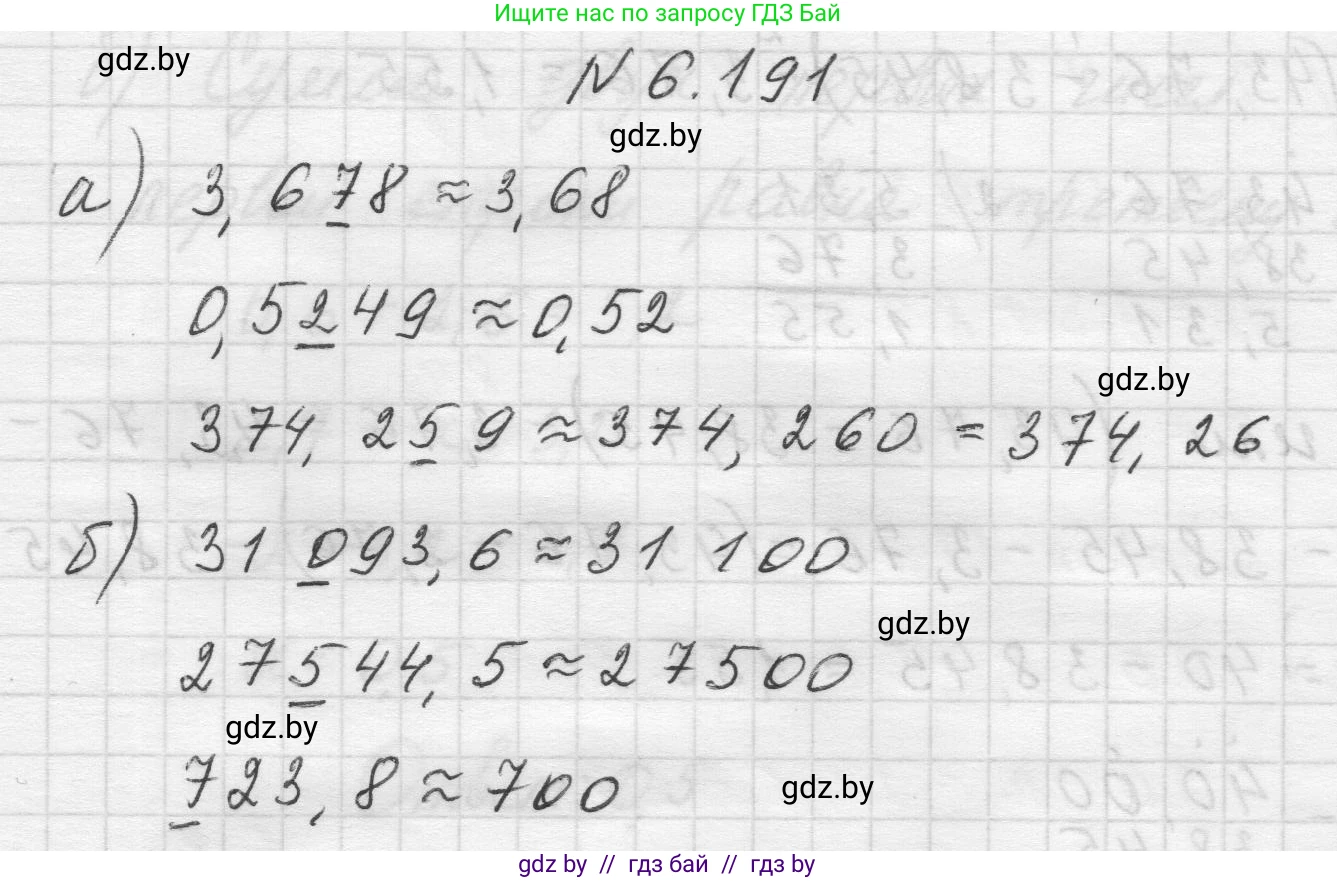 Ищите нас по запросу ГДЗ Бай
gdz.by
N 6.191
gdz.by
а) 3,678 ≈ 3,68
0,5249 ≈ 0,52
gdz.by
374,259 ≈ 374,260 = 374,26
б) 31 093,6 ≈ 31 100
gdz.by
27544,5 ≈ 27500
gdz.by
723,8 ≈ 700
gdz.by
gdz by // гдз бай // gdz by